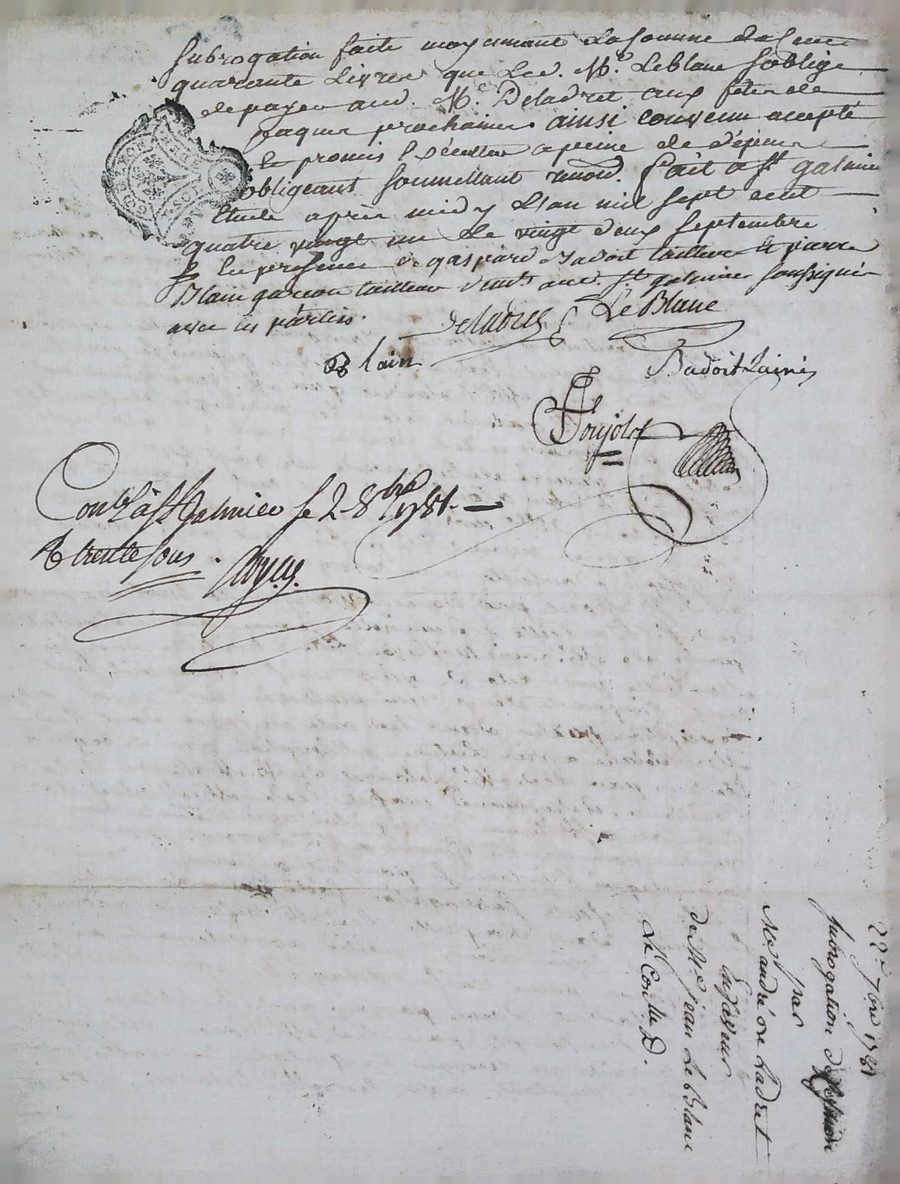 subrogation faite moyennant la somme de cent
quarante livres que led. Me. Leblanc soblige
de payer aud. Mc. Deladret aux fêtes de
paques prochaines ainsi convenu accepté
et promis l'exécuter a peine de dépens
obligeant soumettant renonc. fait a St galmier
étude après midy L'an mil sept cent
quatre vingt un Le vingt deux septembre
En presence de gaspard Badoit tailleur et pierre
Blain garcon tailleur aud. St. galmier soussignés
avec les parties.
Le Blanc
Blain
Badoit Lainé
Contlé à St Galmier le 2 8bre 1781
R trente sous.
22e 7bre 1781
Subrogation de
par
Me. andré De Ladret
En faveur
de Me jean Le Blanc